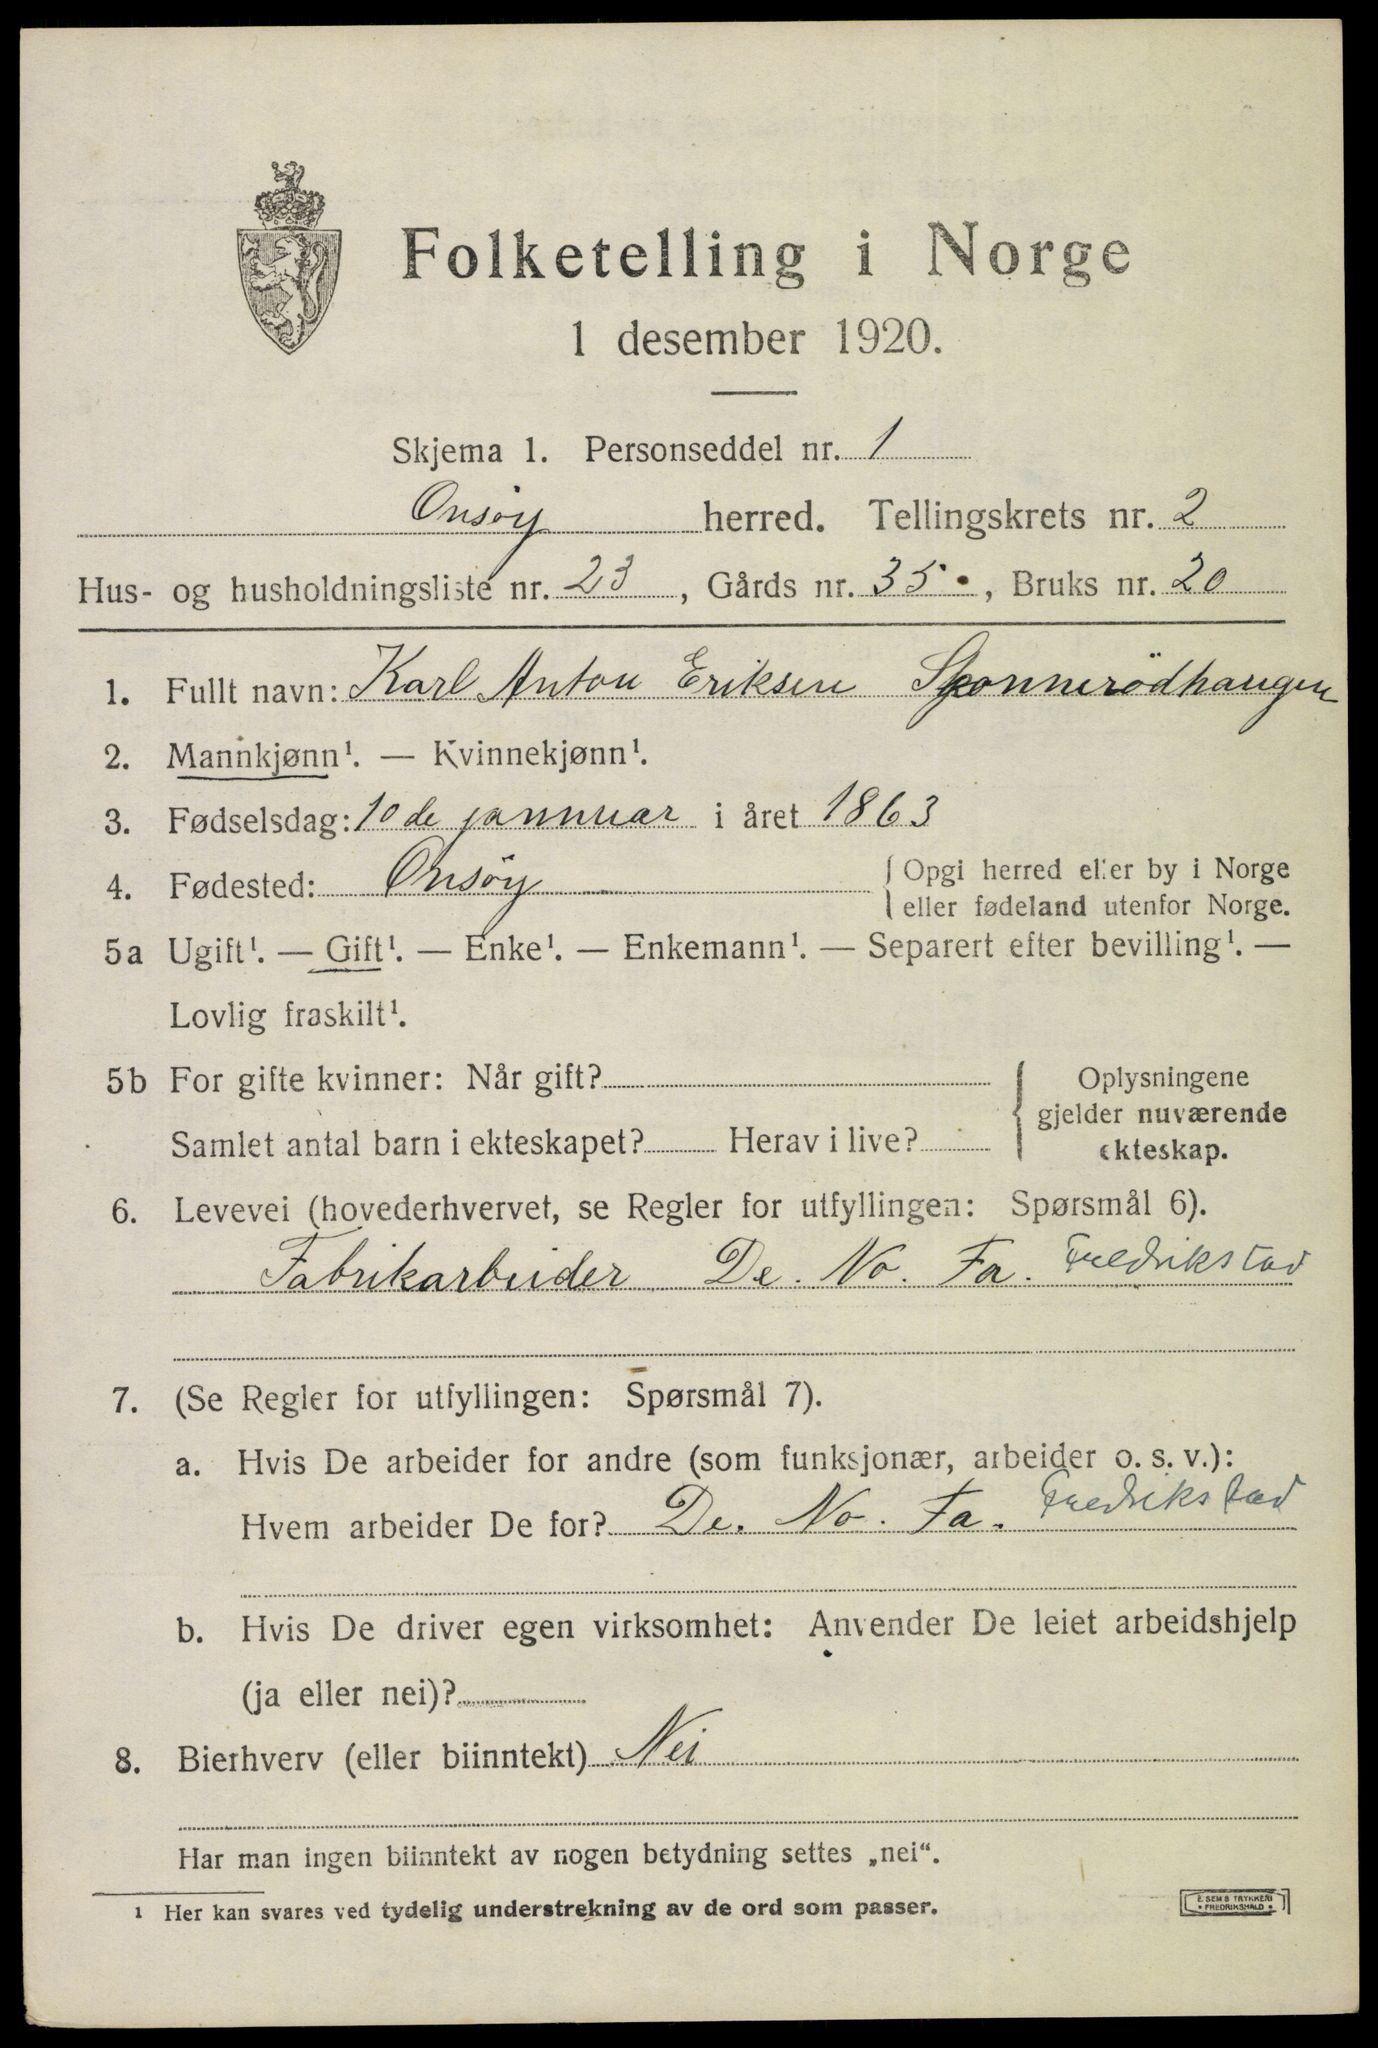 Folketelling i Norge
1 desember 1920.
Skjema 1. Personseddel nr. 1
Onsøy herred. Tellingskrets nr. 2
Hus- og husholdningsliste nr. 23, Gårds nr. 35, Bruks nr. 20
1. Fullt navn: Karl Anton Eriksen Skonnerödhaugen
2. Mannkjønn¹. — Kvinnekjønn¹.
3. Fødselsdag: 10de jannuar i året 1863
4. Fødested: Onsöy { Opgi herred eller by i Norge
eller fødeland utenfor Norge.
5a Ugift¹. — Gift¹. — Enke¹. — Enkemann¹. — Separert efter bevilling¹. —
Lovlig fraskilt¹.
5b For gifte kvinner: Når gift?
Samlet antal barn i ekteskapet? Herav i live?
{ Oplysningene
gjelder nuværende
ekteskap.
6. Levevei (hovederhvervet, se Regler for utfyllingen: Spørsmål 6).
Fabrikarbeider De. No. Fa. Fredrikstad
7. (Se Regler for utfyllingen: Spørsmål 7).
a. Hvis De arbeider for andre (som funksjonær, arbeider o. s. v.):
Hvem arbeider De for? De. No. Fa. Fredrikstad
b. Hvis De driver egen virksomhet: Anvender De leiet arbeidshjelp
(ja eller nei)?
8. Bierhverv (eller biinntekt) Nei
Har man ingen biinntekt av nogen betydning settes „nei“.
¹ Her kan svares ved tydelig understrekning av de ord som passer.
E. SEM'S TRYKKERI
• FREDRIKSHALD •